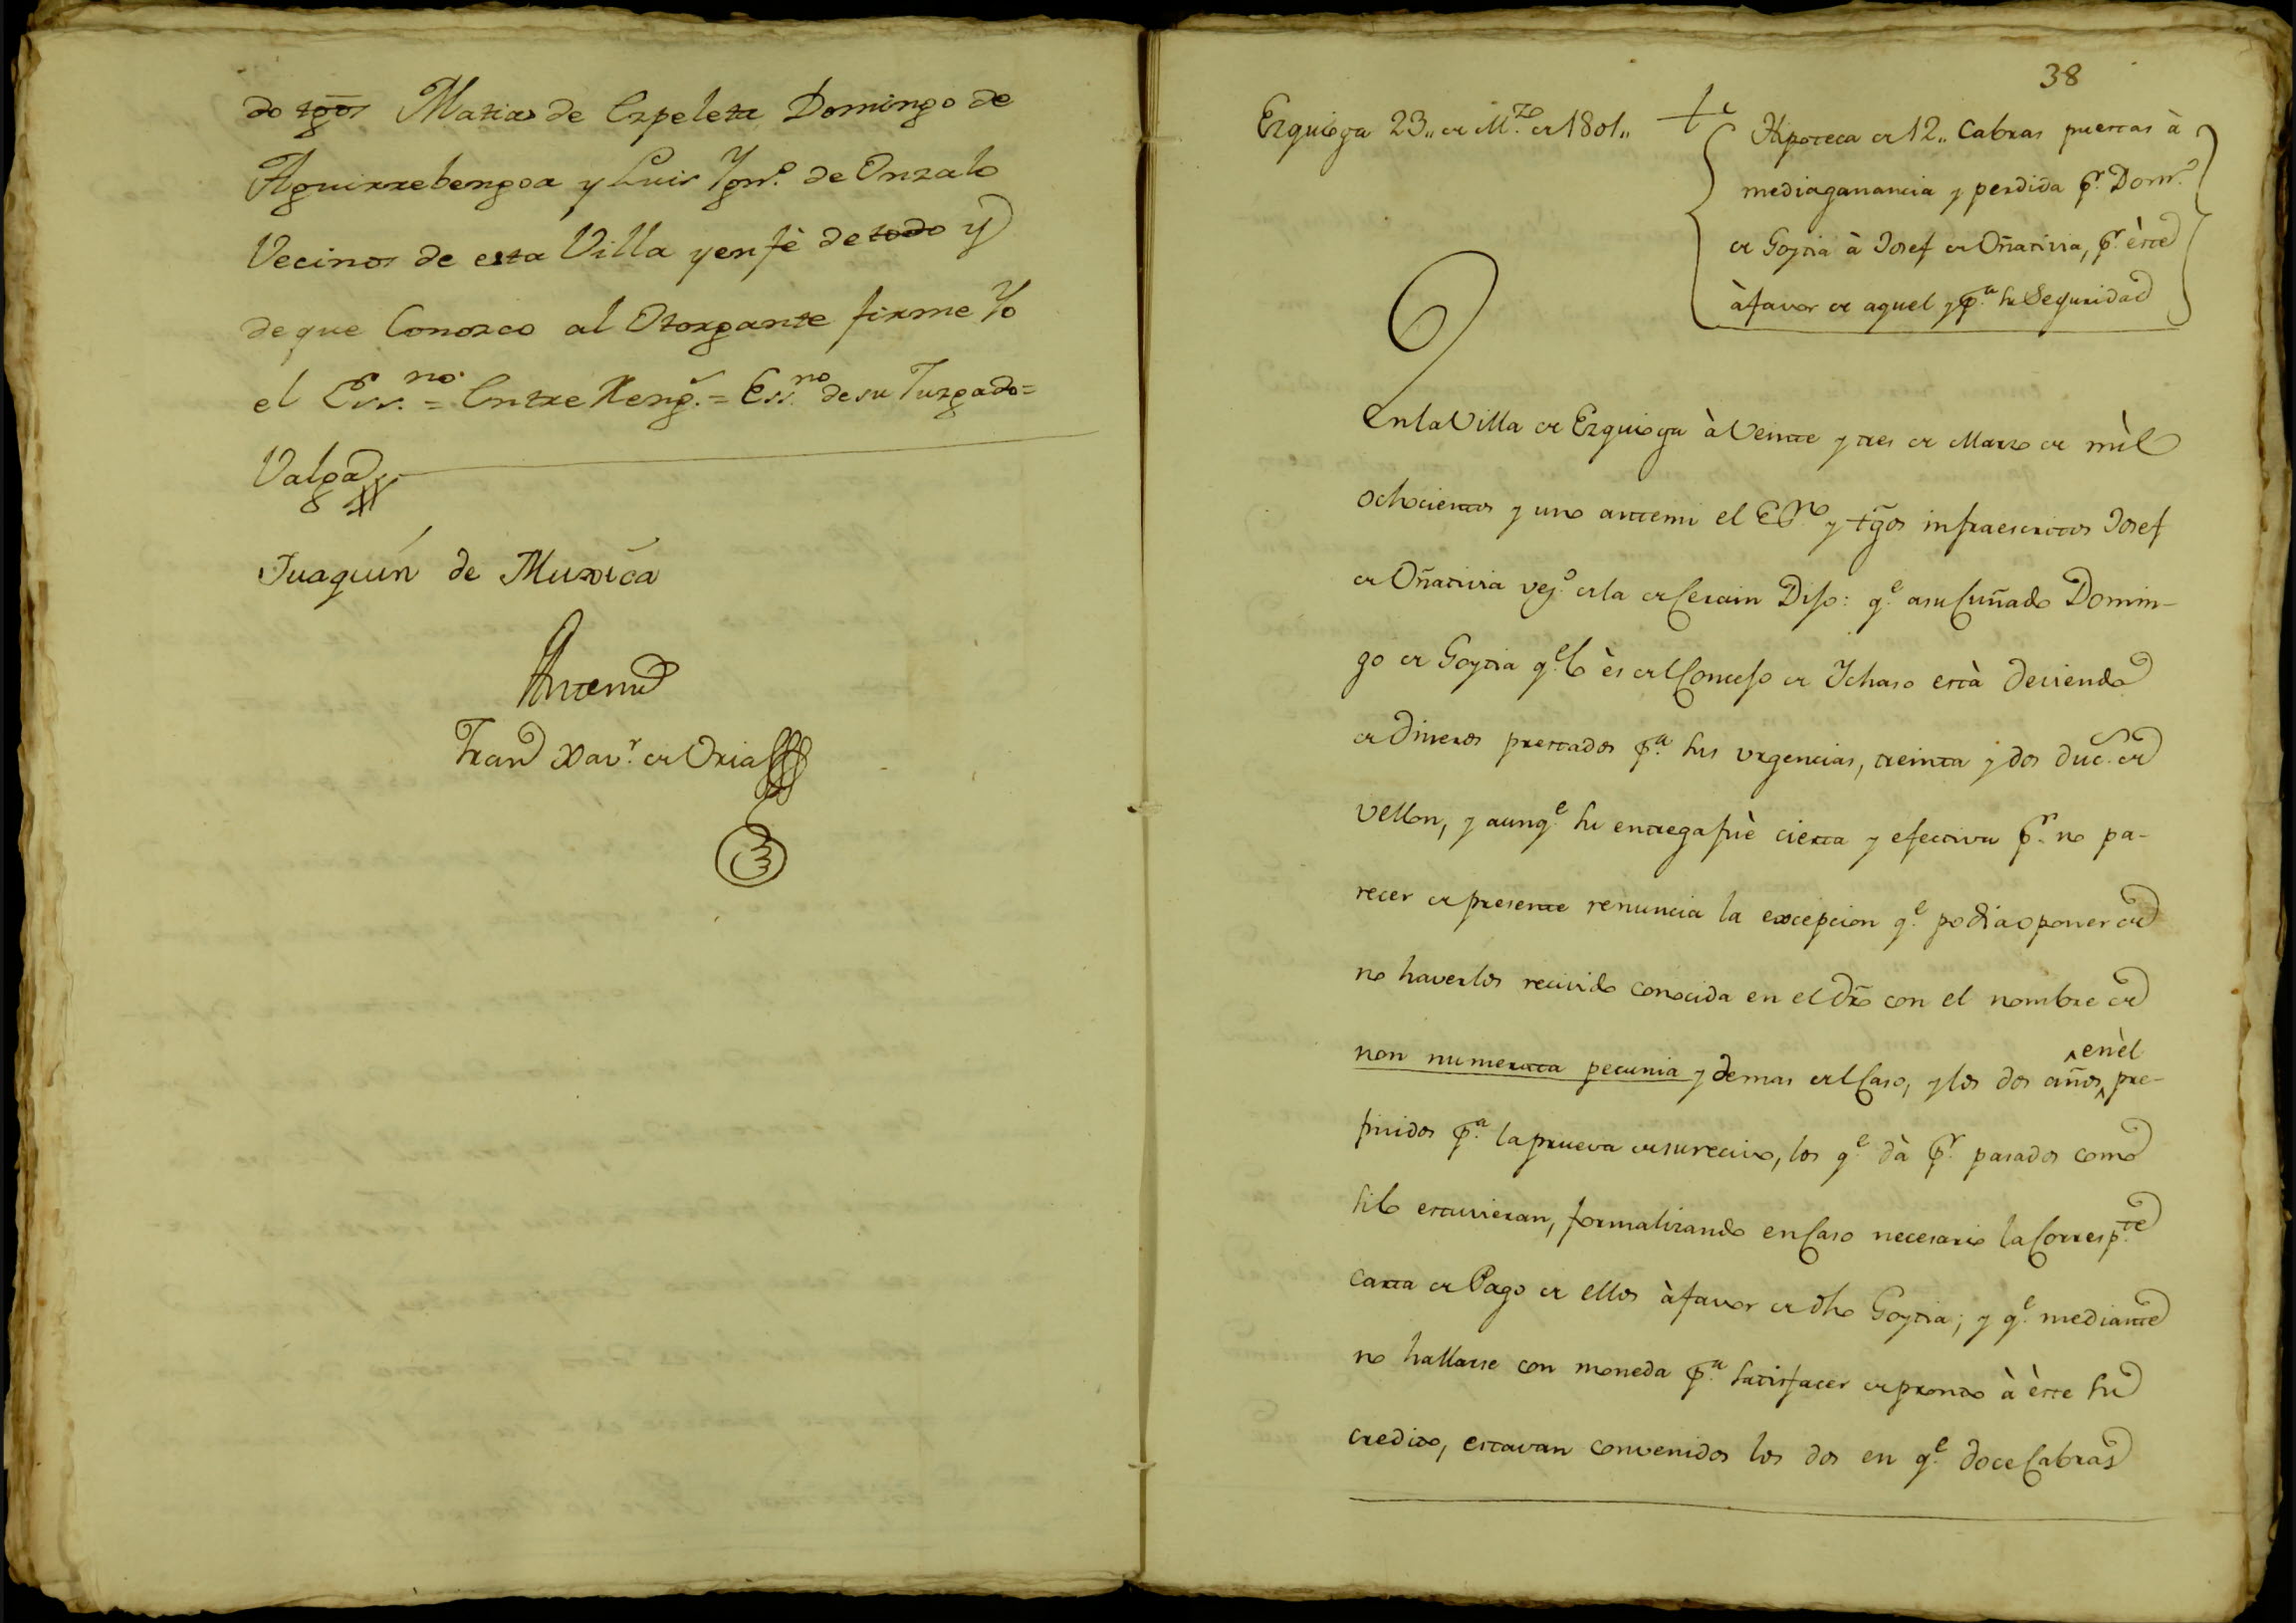 do tgõs Matias de Ezpeleta Domingo de
Aguirrebengoa y Luis Ygn.º de Onzalo
Vecinos de esta Villa y en fè de todo y
de que Conozco al Otorgante firme Yo
el Ess.no = Entre Reng.s = Ess.no de su Juzgado =
Valga
Juaquin de Muxica
Antemi
Fran Xav.r de Oria
38
Ezquioga 23,, de M.zo de 1801,,
Hipoteca de 12,, Cabras puestas à
media ganancia y perdida p.r Dom.º
de Goytia à Josef de Oñativia, p.r èste
à favor de aquel y p.a su Seguridad
En la Villa de Ezquioga à Veinte y tres de Marzo de mìl
ochocientos y uno ante mi el Ess.no y tgõs infraescritos Josef
de Oñativia vez.º de la de Cerain Dijo: q.e a su Cuñado Domin-
go de Goytia q.e lo ès del Concejo de Ichaso està deviendo
de Dineros prestados p.a sus urgencias, treinta y dos duc.s de
vellon, y aunq.e su entrega fuè cierta y efectiva p.r no pa-
recer de presente renuncia la excepcion q.e podia oponer de
no haverlos recivido conocida en el dr̃o con el nombre de
non numerata pecunia y demas del Caso, y los dos años ^enèl pre-
finidos p.a la prueva de su recivo, los q.e dà p.r pasados como
si lo estuvieran, formalizando en Caso necesario la Corresp.te
carta de Pago de ellos à favor de dho Goytia; y q.e mediante
no hallarse con moneda p.a satisfacer de pronto à èste su
credito, estavan convenidos los dos en q.e doce Cabras